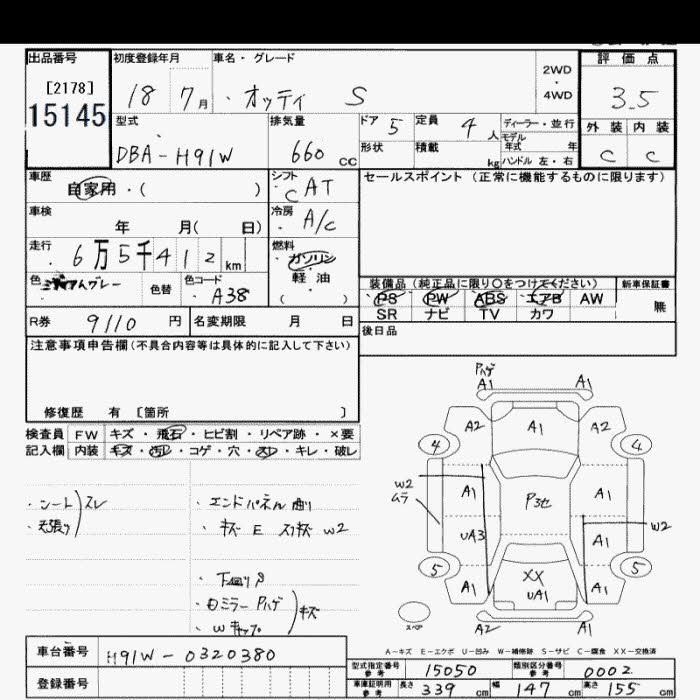 出品番号
[2178]
15145
初度登録年月
18 7月
車名・グレード
・オッティ S
2WD
・
4WD
評価点
3.5
外装 内装
C C
型式
DBA-H91W
排気量
660 cc
ドア 5
定員 4人
形状
積載 kg
ディーラー・並行
モデル
年式 年
ハンドル 左・右
車歴
自家用・( )
シフト
・CAT
セールスポイント (正常に機能するものに限ります)
車検
年 月( 日)
冷房
・A/C
走行
6万5千412 km
燃料
ガソリン
軽・油
( )
色
色替
色コード
・A38
装備品 (純正品に限り○をつけてください)
新車保証書
無
PS PW ABS エアB AW
SR ナビ TV カワ
R券
9110 円
名変期限 月 日
後日品
注意事項申告欄 (不具合内容等は具体的に記入して下さい)
修復歴 有 [箇所 ]
検査員
記入欄
FW キズ・飛石・ヒビ割・リペア跡・×要
内装 キズ・汚レ・コゲ・穴・スレ・キレ・破レ
・シート)スレ
・天張り
・エンドパネル曲り
・キズ E スリキズ W2
・下回りS
・Dミラー Pハゲ)キズ
・Wキャップ
Pハゲ
A1 A1
A2 A1 A2
4 4
W2
ムラ
A1 A1
P3セ
W2
UA3 A1
5 5
A1 XX A1
UA1
スペア
A2 A1
A-キズ E-エクボ U-凹み W-補修跡 S-サビ C-腐食 XX-交換済
車台番号
H91W-0320380
登録番号
型式指定番号
参考
15050
類別区分番号
参考
0002
車庫証明用
参考
長さ 339 cm 幅 147 cm 高さ 155 cm